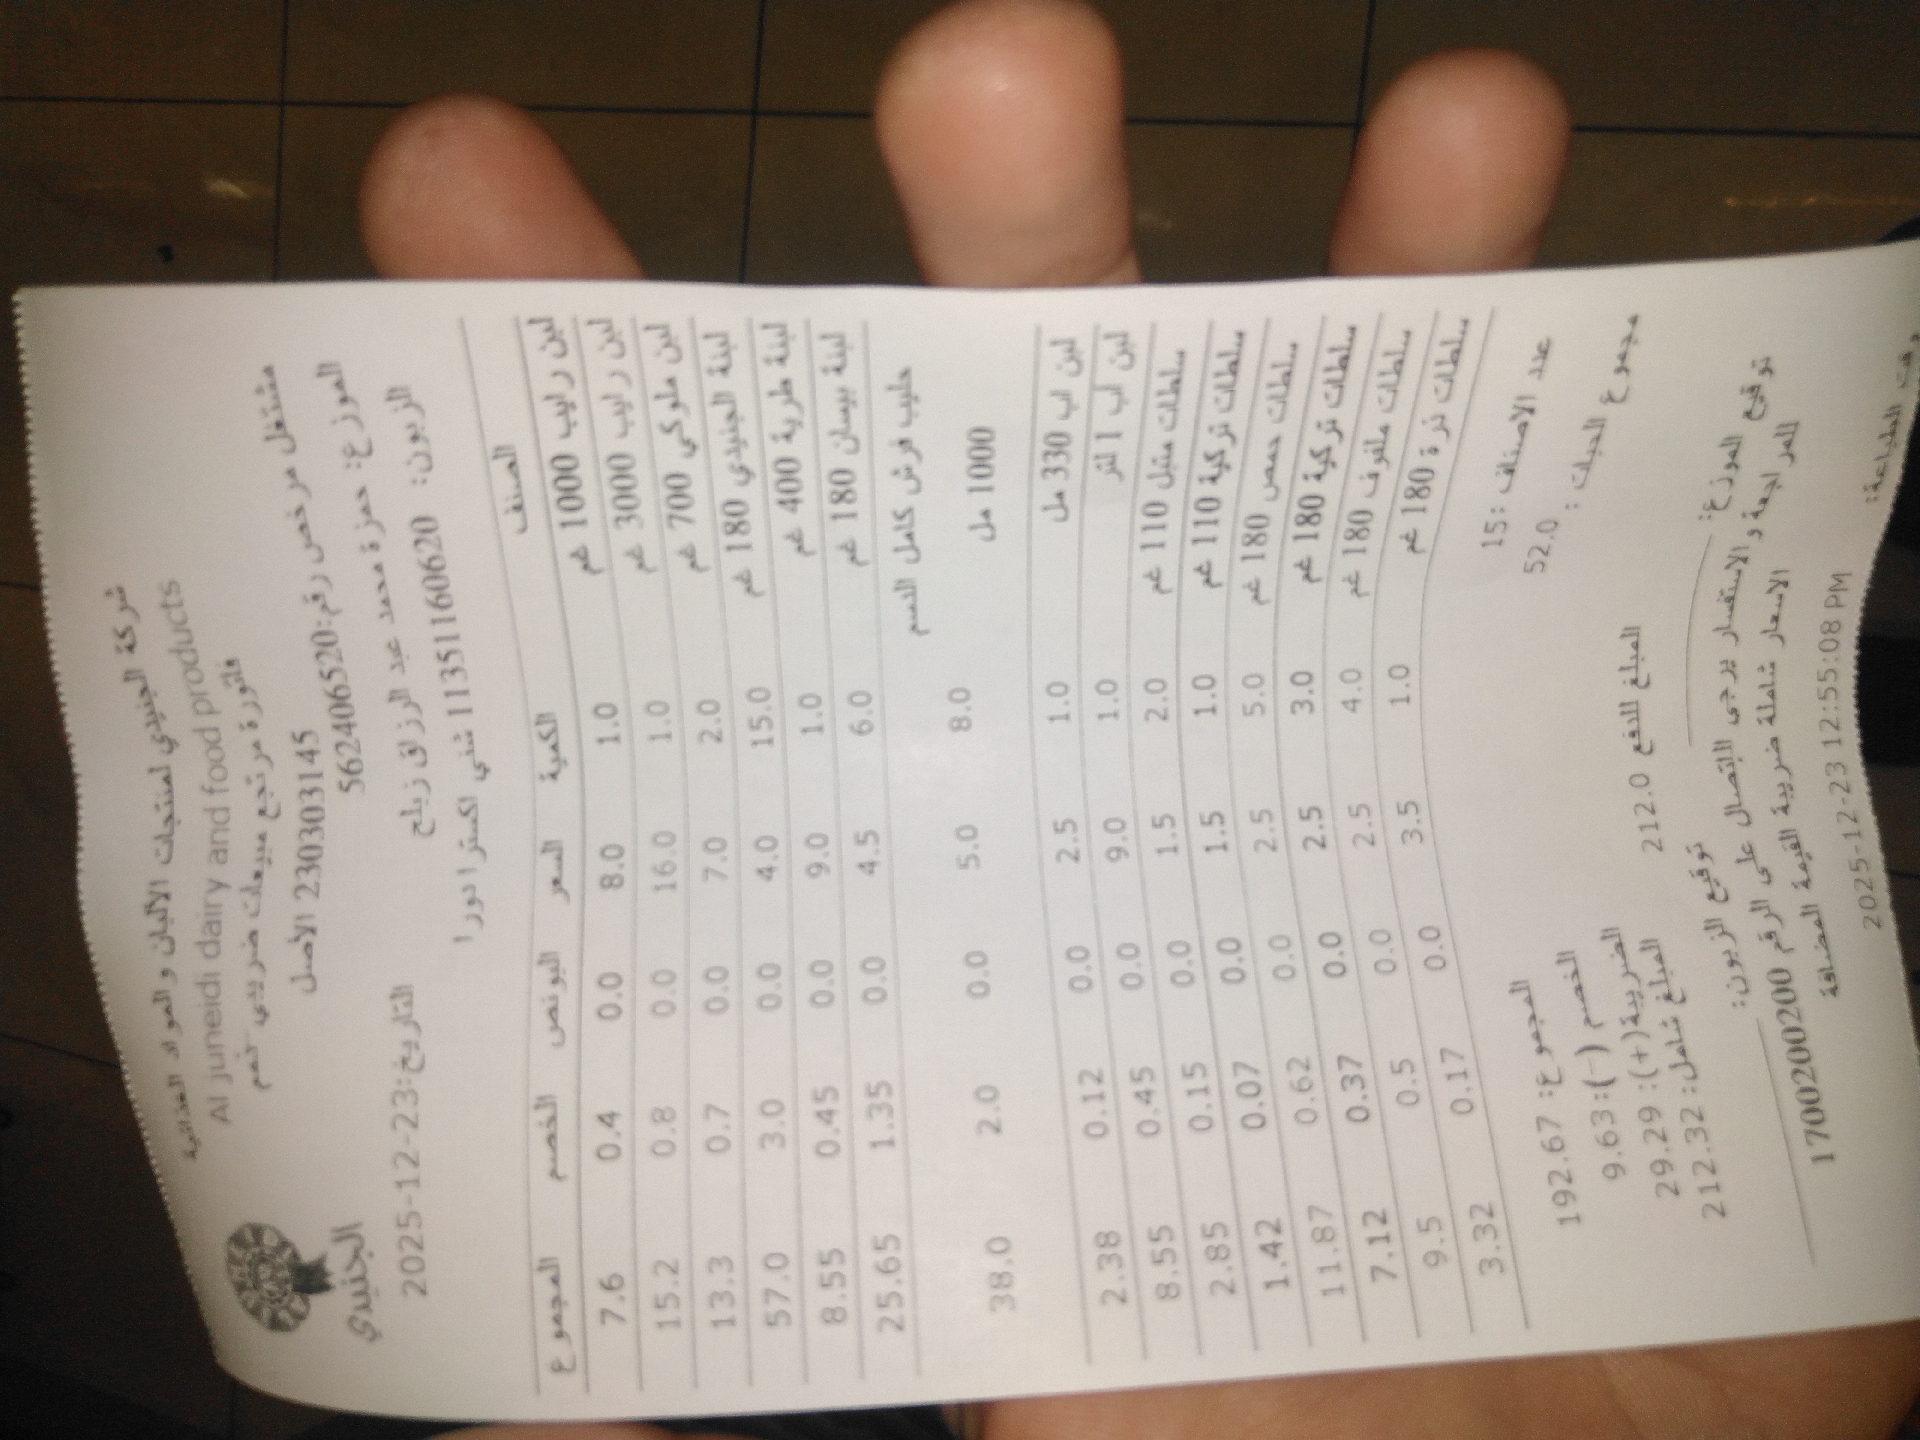 الجنيدي
شركة الجنيدي لمنتجات الألبان والمواد الغذائية
Al juneidi dairy and food products
فاتورة مرتجع مبيعات ضريبي خصم
230303145 الأصل
مشتغل مرخص رقم:562406520
الموزع: حمزة محمد عبد الرزاق زبلح
التاريخ:23-12-2025
الزبون: 11351160620 شني اكسترا دورا
الصنف الكمية السعر البونص الخصم المجموع
لبن رايب 1000 غم 1.0 8.0 0.0 0.4 7.6
لبن رايب 3000 غم 1.0 16.0 0.0 0.8 15.2
لبن ملوكي 700 غم 2.0 7.0 0.0 0.7 13.3
لبنة الجنيدي 180 غم 15.0 4.0 0.0 3.0 57.0
لبنة طرية 400 غم 1.0 9.0 0.0 0.45 8.55
لبنة بيسان 180 غم 6.0 4.5 0.0 1.35 25.65
حليب فرش كامل الدسم
1000 مل 8.0 5.0 0.0 2.0 38.0
لبن اب 330 مل 1.0 2.5 0.0 0.12 2.38
لبن اب 1 لتر 1.0 9.0 0.0 0.45 8.55
سلطات متبل 110 غم 2.0 1.5 0.0 0.15 2.85
سلطات تركية 110 غم 1.0 1.5 0.0 0.07 1.42
سلطات حمص 180 غم 5.0 2.5 0.0 0.62 11.87
سلطات تركية 180 غم 3.0 2.5 0.0 0.37 7.12
سلطات ملفوف 180 غم 4.0 2.5 0.0 0.5 9.5
سلطات ذرة 180 غم 1.0 3.5 0.0 0.17 3.32
عدد الاصناف :15
مجموع الحبات : 52.0
المجموع: 192.67
الخصم (-): 9.63
الضريبة(+): 29.29
المبلغ شامل: 212.32
المبلغ للدفع 212.0
توقيع الموزع:
توقيع الزبون:
للمراجعة والاستفسار يرجى الاتصال على الرقم 1700200200
الاسعار شاملة ضريبة القيمة المضافة
وقت الطباعة: 2025-12-23 12:55:08 PM